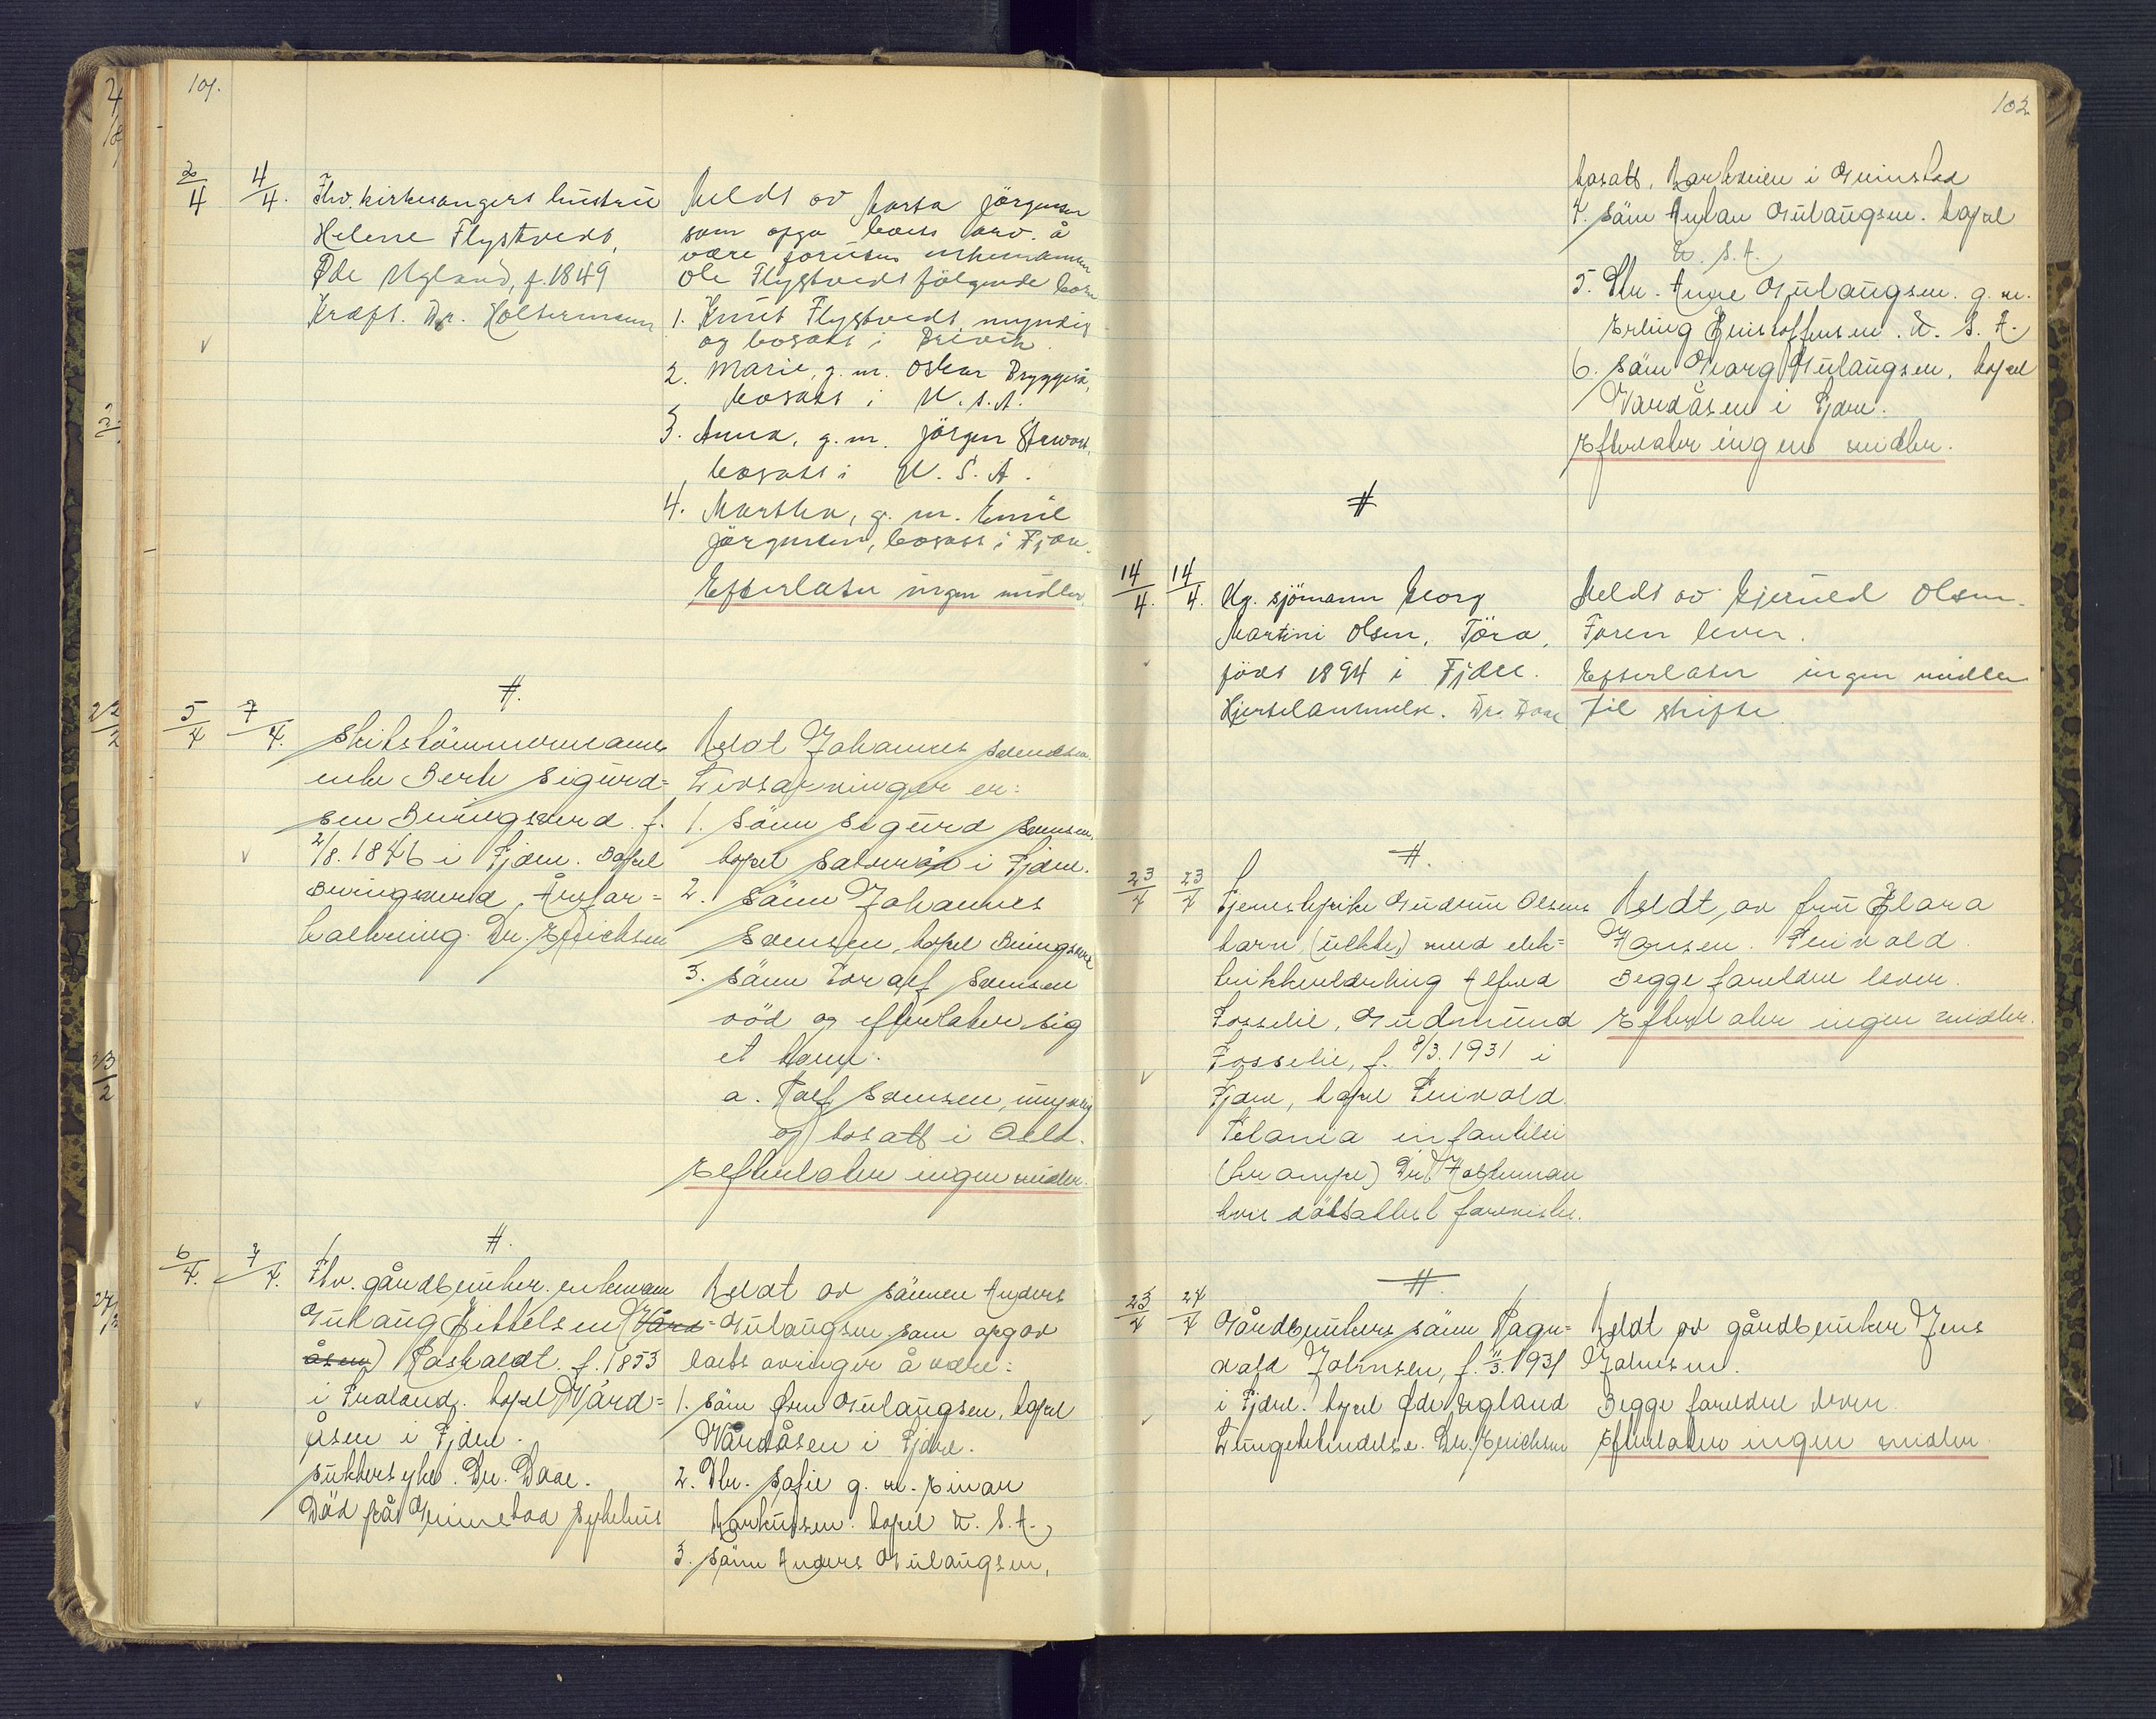 101.
2/4 4/4. Fhv. kirkesangers hustru
Helene Flystveds,
Øde Ugland, f. 1849
Kræft. Dr. Holtermann
Meldt av Marta Jörgensen
som opga boets arv. å
være foruten enkemannen
Ole Flystveds følgende barn
1. Knut Flystvedt, myndig
og bosatt i Breivik.
2. Marie, g. m. Oskar Bryggeså,
bosatt i U. S. A.
3. Anna, g. m. Jörgen
bosatt i U. S. A.
4. Martha, g. m. Emil
Jörgensen, bosatt i Fjære.
Efterlater ingen midler.
#.
5/4 7/4. Skibstömmermanns
enke Berte Sigurd=
sen Bringsværd. f.
2/8. 1846 i Fjære. Bopel
Bringsværd, Årefor=
kalkning. Dr. Erichsen
Meldt Johannes Svendsen.
Livsarvinger er:
1. Sönn Sigurd Svensen,
bopel i Fjære.
2. Sönn Johannes
Svensen, bopel Bringsværd
3. Sönn Toralf Svensen
död og efterlater sig
et barn.
a. Rolf Svensen, myndig
og bosatt i Oslo.
Efterlater ingen midler.
#.
6/4. 7/4. Fhv. gårdbruker. enkemann
Gulaug Kittelsen (Vård=
åsen) Roskaldt. f. 1853
i Froland. bopel Vård=
åsen i Fjære.
Sukkersyke. Dr. Daae.
Död på Grimstad Sykehus
Meldt av sönnen Anders
Gulaugsen som opgav
boets arvinger å være:
1. Sönn Gulaugsen, bopel
Vårdåsen i Fjære.
2. Dtr. Sofie g. m. Einar
Markussen. bopel U. S. A.
3. Sönn Anders Gulaugsen,
102
bosatt, i Grimstad
4. Sönn Gulaugsen. bopel
U. S. A.
5. Dtr. Anne Gulaugsen. g. m.
Erling Kristoffersen. U. S. A.
6. Sönn Georg Gulaugsen, bopel
Vardåsen i Fjære.
Efterlater ingen midler.
#
14/4. 14/4. Ug. sjömann Georg
Martini Olsen, Töra,
födt 1894 i Fjære.
Hjertelammelse. Dr. Daae
Meldt av Gjerud Olsen.
Faren lever.
Efterlater ingen midler
til skifte
#.
23/4 23/4 Tjenestepike Gudrun Olsens
barn (uekte) med elek=
trikkerlærling Alfred
Fosselie, Gudmund
Fosselie, f. 8/3. 1931 i
Fjære, bopel Frivold.
Tetania infantilis
(krampe) Dr. Holterman
hvis dödsattest forevistes.
Meldt, av fru Klara
Hansen. Frivold.
Begge foreldre lever.
Efterlater ingen midler.
#.
23/4 24/4 Gårdbrukers sönn Ragn=
vald Johnsen, f. 11/3. 1931
i Fjære. bopel Øde Ugland
Lungebetendelse. Dr. Erichsen
Meldt av gårdbruker Jens
Johnsen.
Begge foreldre lever.
Efterlater ingen midler.